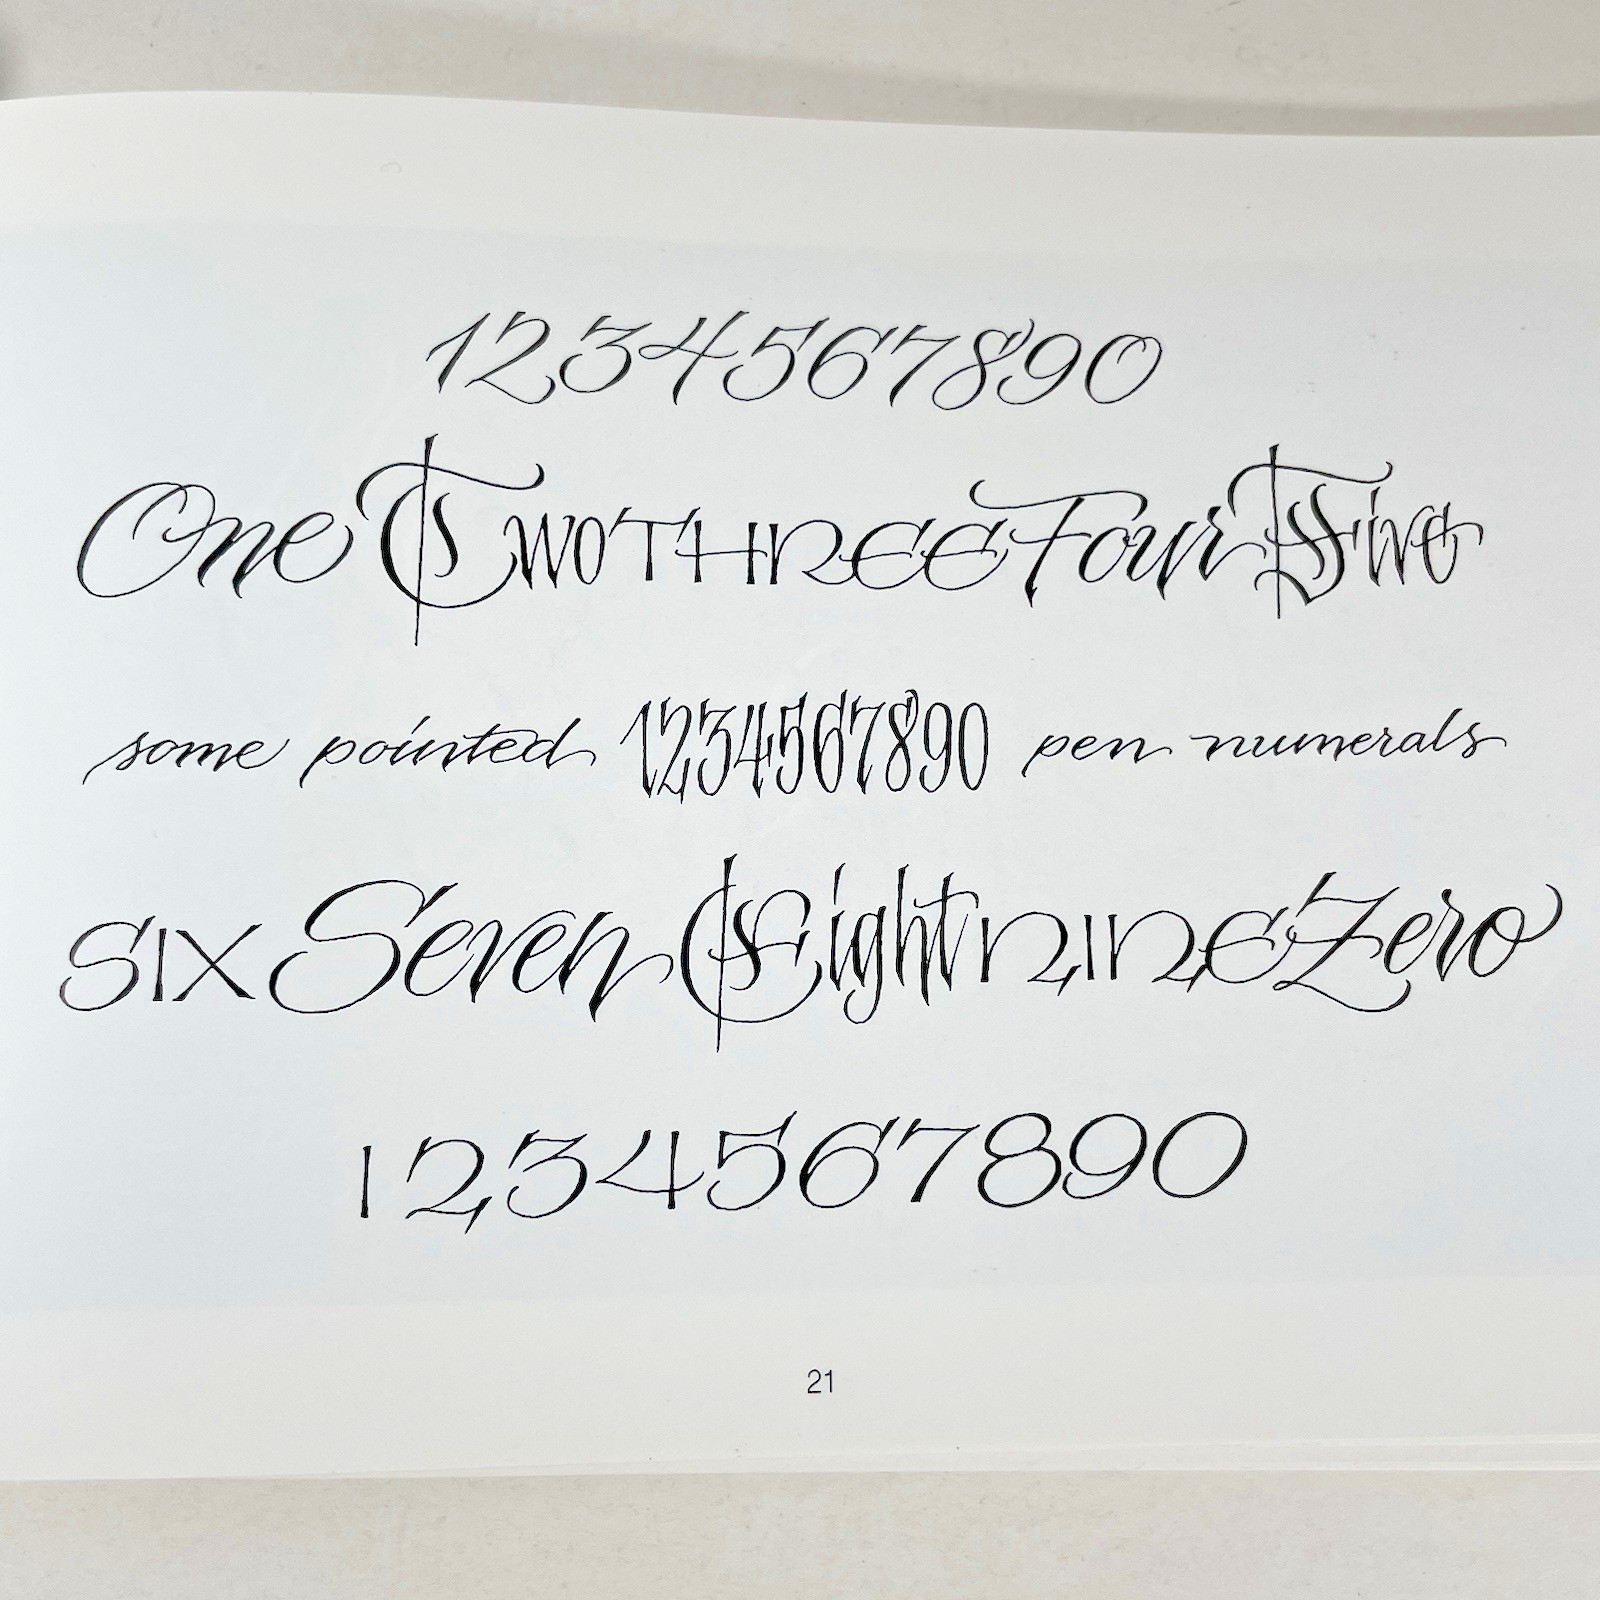 1234567890
One Two THREE Four Five
some pointed 1234567890 pen numerals
SIX Seven Eight NINE Zero
1234567890
21